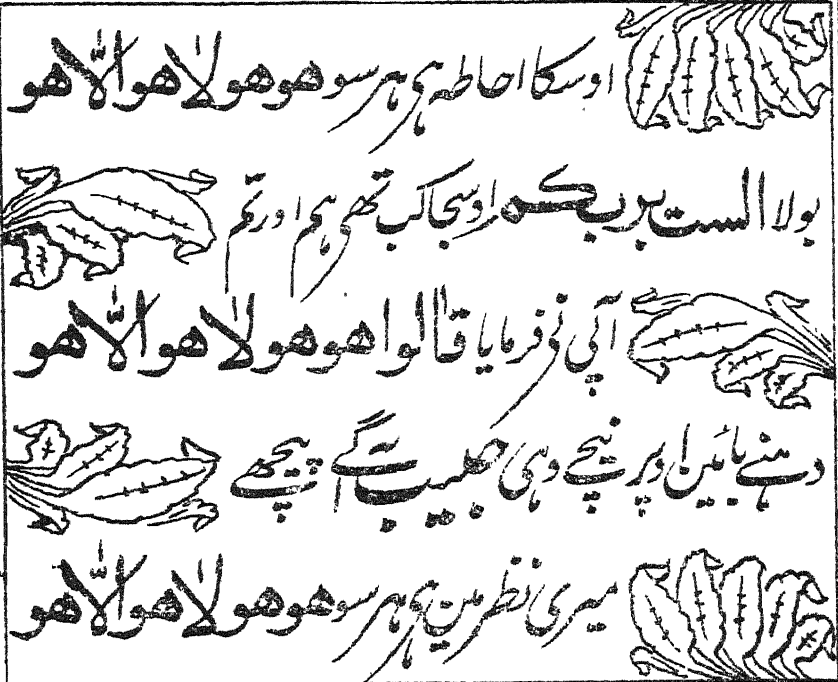 اوسکا احاطہ ہی ہر سو هو هو لا هو الا هو
بولا الست بربکم اوسجا کب تھی ہم اور تم
آپی نی فرمایا قالوا هو هو لا هو الا هو
دہنے بائین اوپر نیچے وہی حبیب ہے آگے پیچھے
میری نظر مین ہی ہر سو هو هو لا هو الا هو